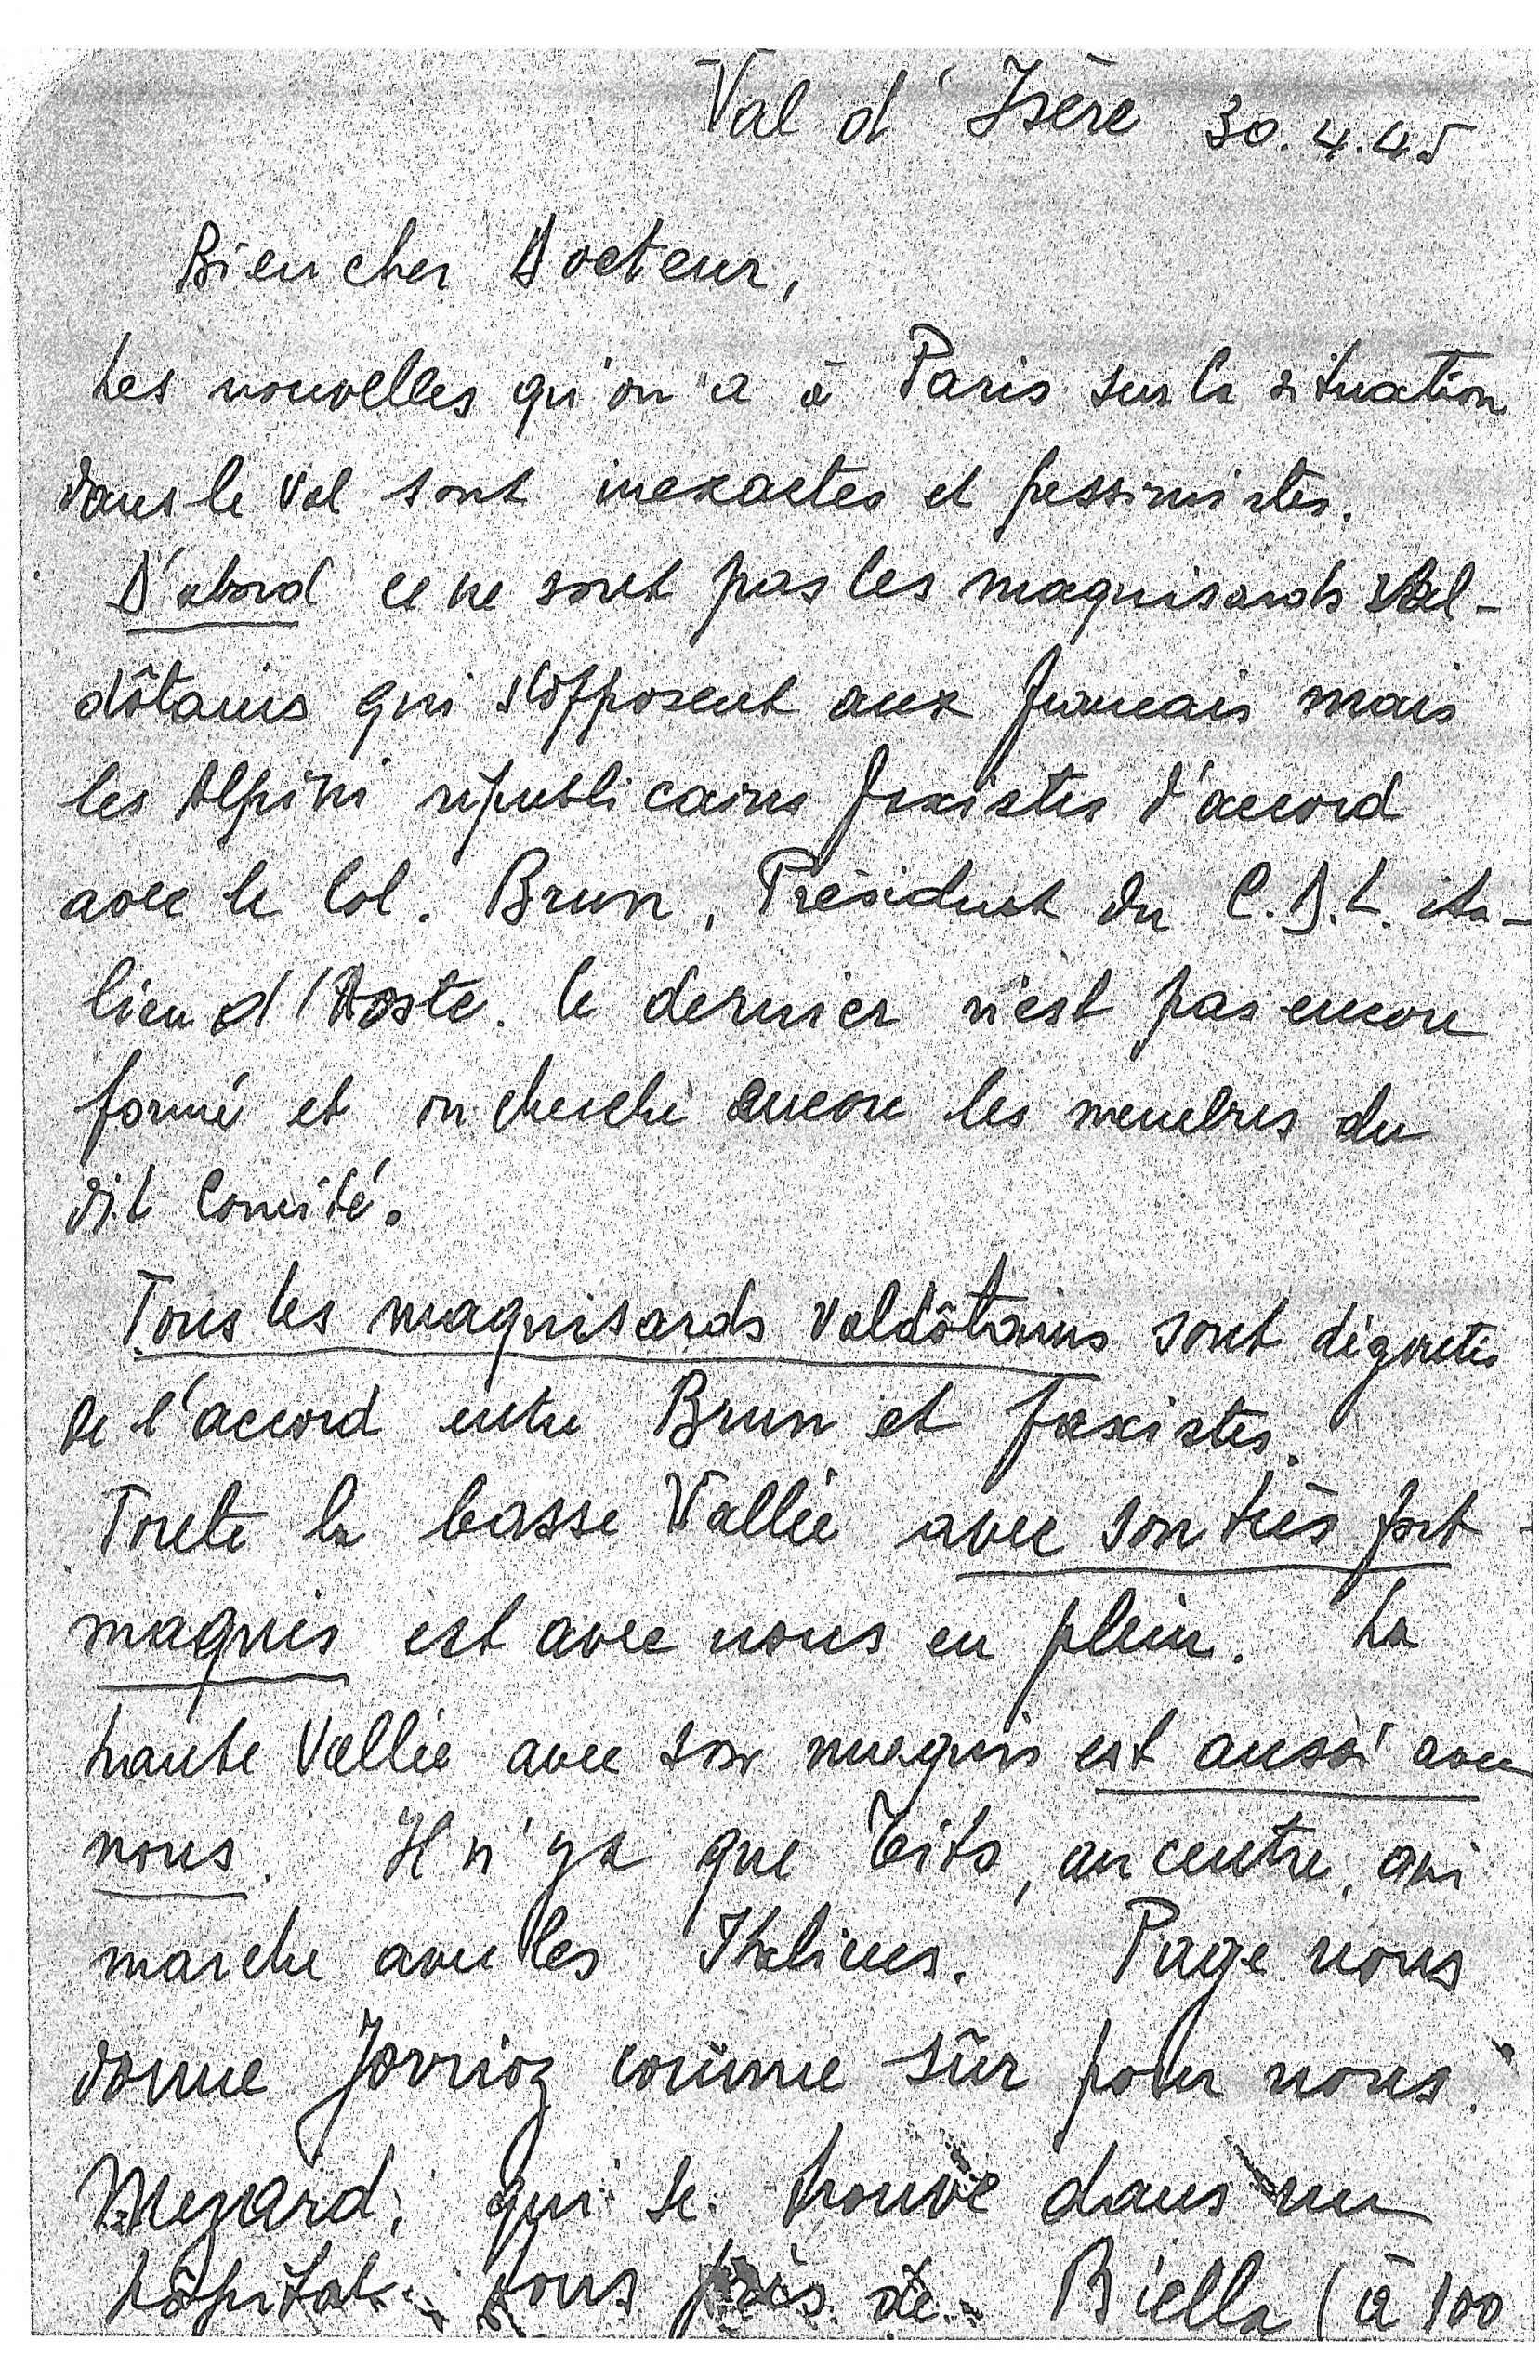 Val d'Isère 30.4.45
Bien cher Docteur,
Les nouvelles qu'on a à Paris sur la situation
dans le Val sont inexactes et pessimistes.
D'abord ce ne sont pas les maquisards Val-
dôtains qui s'opposent aux français mais
les Alpini républicains faxistes d'accord
avec le Col. Brun, Président du C.D.L. ita-
lien d'Aoste. Ce dernier n'est pas encore
formé et on cherche encore les membres du
dit Comité.
Tous les maquisards Valdôtains sont dégoutés
de l'accord entre Brun et faxistes.
Toute la basse Vallée avec son très fort
maquis est avec nous en plein. La
haute Vallée avec son maquis est aussi avec
nous. Il n'y a que au centre, qui
marche avec les Italiens. Page nous
donne Jorrioz comme sûr pour nous.
Mezard, qui se trouve dans un
hôpital près de Biella (à 100